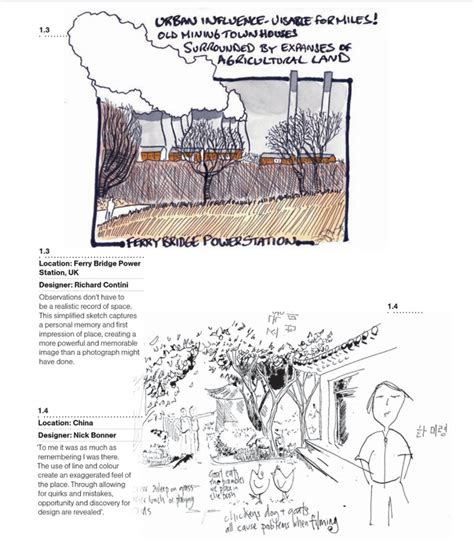 1.3
URBAN INFLUENCE - VISABLE for MILES!
OLD MINING TOWN HOUSES
SURROUNDED BY EXPANSES OF
AGRICULTURAL LAND
FERRYBRIDGE POWERSTATION
1.3
Location: Ferry Bridge Power
Station, UK
Designer: Richard Contini
Observations don't have to
be a realistic record of space.
This simplified sketch captures
a personal memory and first
impression of place, creating a
more powerful and memorable
image than a photograph might
have done.
1.4
1.4
Location: China
Designer: Nick Bonner
'To me it was as much as
remembering I was there.
The use of line and colour
create an exaggerated feel of
the place. Through allowing
for quirks and mistakes,
opportunity and discovery for
design are revealed'.
Goat eats
the brambles
we place in
the bush
asleep on grass
of playing
chickens dog + goats
all cause problems when filming